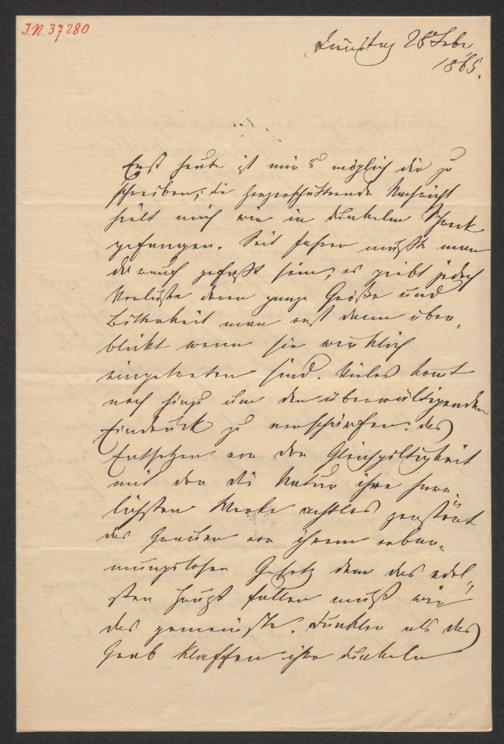 I.N. 37280
Dinstag 28 Febr.
1865.
Erst heute ist mir's möglich dir zu
schreiben; die herzerschütternde Nachricht
hielt mich wie in dunkelm Schreck
gefangen. Seit Jahren mußte man
darauch gefaßt sein; es giebt jedoch
Verluste deren ganze Größe und
Bitterkeit man erst dann über-
blickt wenn sie wirklich
eingetreten sind. Vieles komt
noch hinzu um den überwältigenden
Eindruck zu verschärfen: das
Entsetzen vor der Gleichgiltigkeit
mit der die Natur ihre herr-
lichsten Werke achtlos zerstört
das Grauen vor ihrem erbar-
mungslosen Gesetz dem das edel-
sten Haupt fallen muß wie
das gemeinste. Dunkler als das
Grab klaffen ihre dunkeln